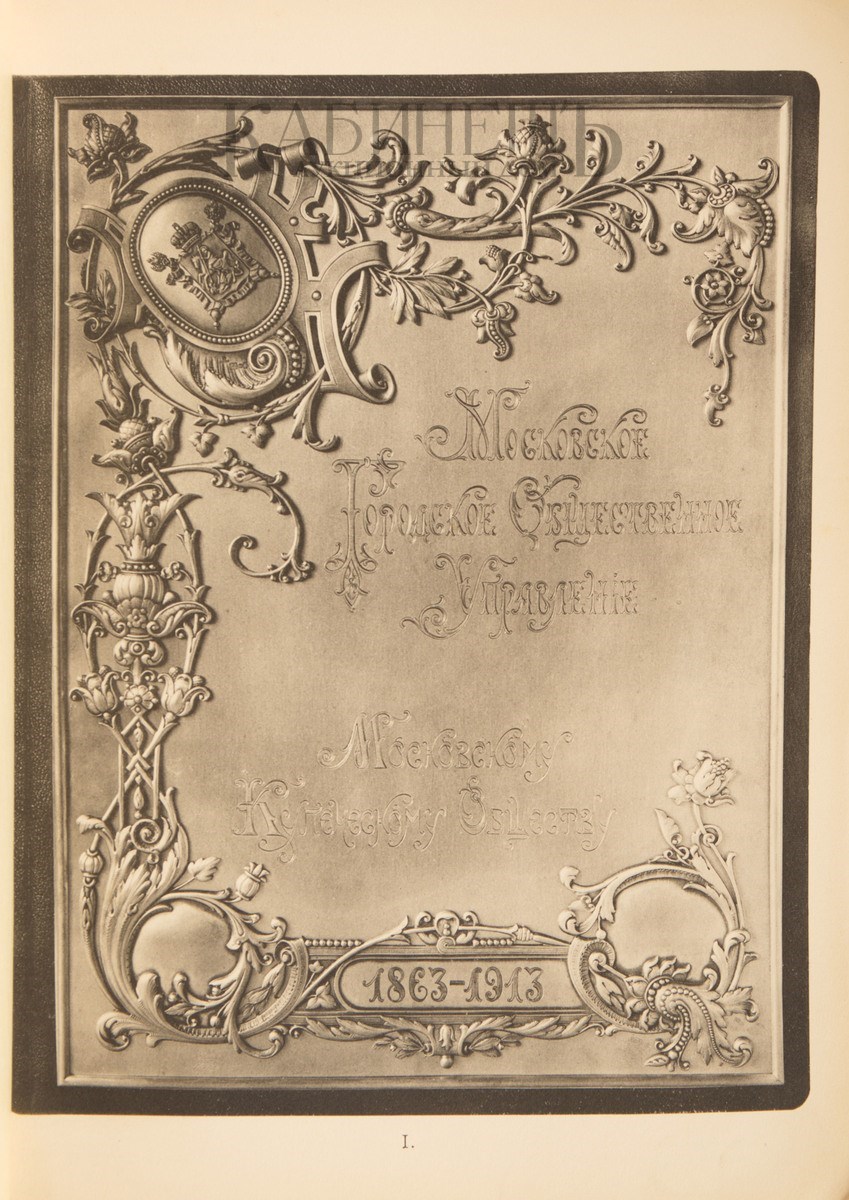 КАБИНЕТЪ
АУКЦИОННЫЙ ДОМ
Московское
Городское Общественное
Управленіе
Московскому
Купеческому Обществу
1863-1913
I.